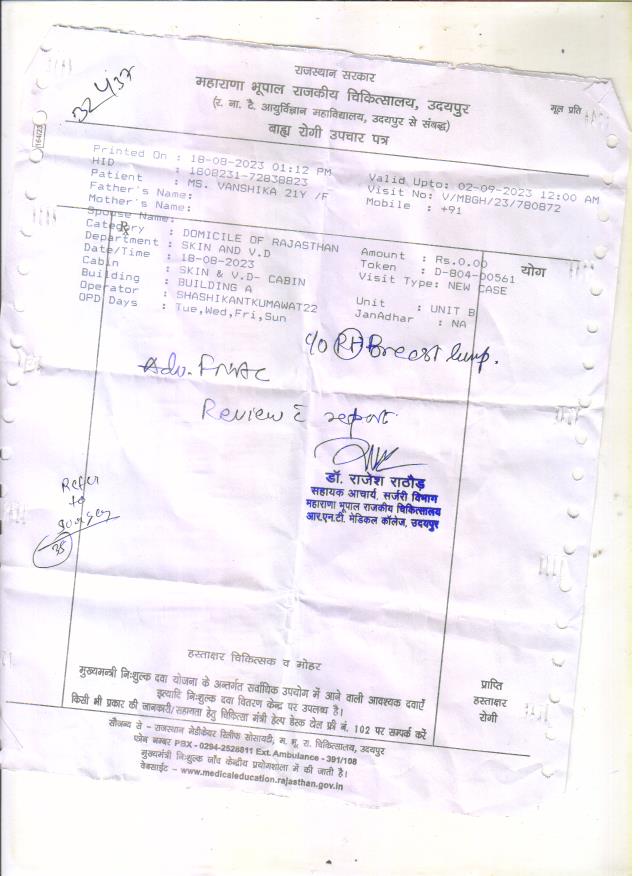 राजस्थान सरकार
महाराणा भूपाल राजकीय चिकित्सालय, उदयपुर
(र. ना. टै. आयुर्विज्ञान महाविद्यालय, उदयपुर से संबद्ध)
मूल प्रति
बाह्य रोगी उपचार पत्र
Printed On : 18-08-2023 01:12 PM
HID : 1808231-72838823
Valid Upto: 02-09-2023 12:00 AM
Patient : MS. VANSHIKA 21Y /F
Visit No: V/MBGH/23/780872
Father's Name:
Mobile : +91
Mother's Name:
Spouse Name:
Category : DOMICILE OF RAJASTHAN
Amount : Rs.0.00
योग
Department : SKIN AND V.D
Token : D-804-00561
Date/Time : 18-08-2023
Visit Type: NEW CASE
Cabin : SKIN & V.D- CABIN
Building : BUILDING A
Unit : UNIT B
Operator : SHASHIKANTKUMAWAT22
JanAdhar : NA
OPD Days : Tue,Wed,Fri,Sun
c/o RH Breast lump.
Adv. FNAC
Review c report
डॉ. राजेश राठौड़
सहायक आचार्य, सर्जरी विभाग
महाराणा भूपाल राजकीय चिकित्सालय
आर.एन.टी. मेडिकल कॉलेज, उदयपुर
Refer
to
surgery
38
हस्ताक्षर चिकित्सक व मोहर
मुख्यमन्त्री निःशुल्क दवा योजना के अन्तर्गत सर्वाधिक उपयोग में आने वाली आवश्यक दवाएँ
इत्यादि निःशुल्क दवा वितरण केन्द्र पर उपलब्ध है।
किसी भी प्रकार की जानकारी/सहायता हेतु चिकित्सा मंत्री हेल्प डेस्क टोल फ्री नं. 102 पर सम्पर्क करें
प्राप्ति
हस्ताक्षर
रोगी
सौजन्य से - राजस्थान मेडीकेयर रिलीफ सोसायटी, म. भू. रा. चिकित्सालय, उदयपुर
फोन नम्बर PBX - 0294-2528811 Ext. Ambulance - 391/108
मुख्यमन्त्री निःशुल्क जाँच केन्द्रीय प्रयोगशाला में की जाती है।
वेबसाईट - www.medicaleducation.rajasthan.gov.in